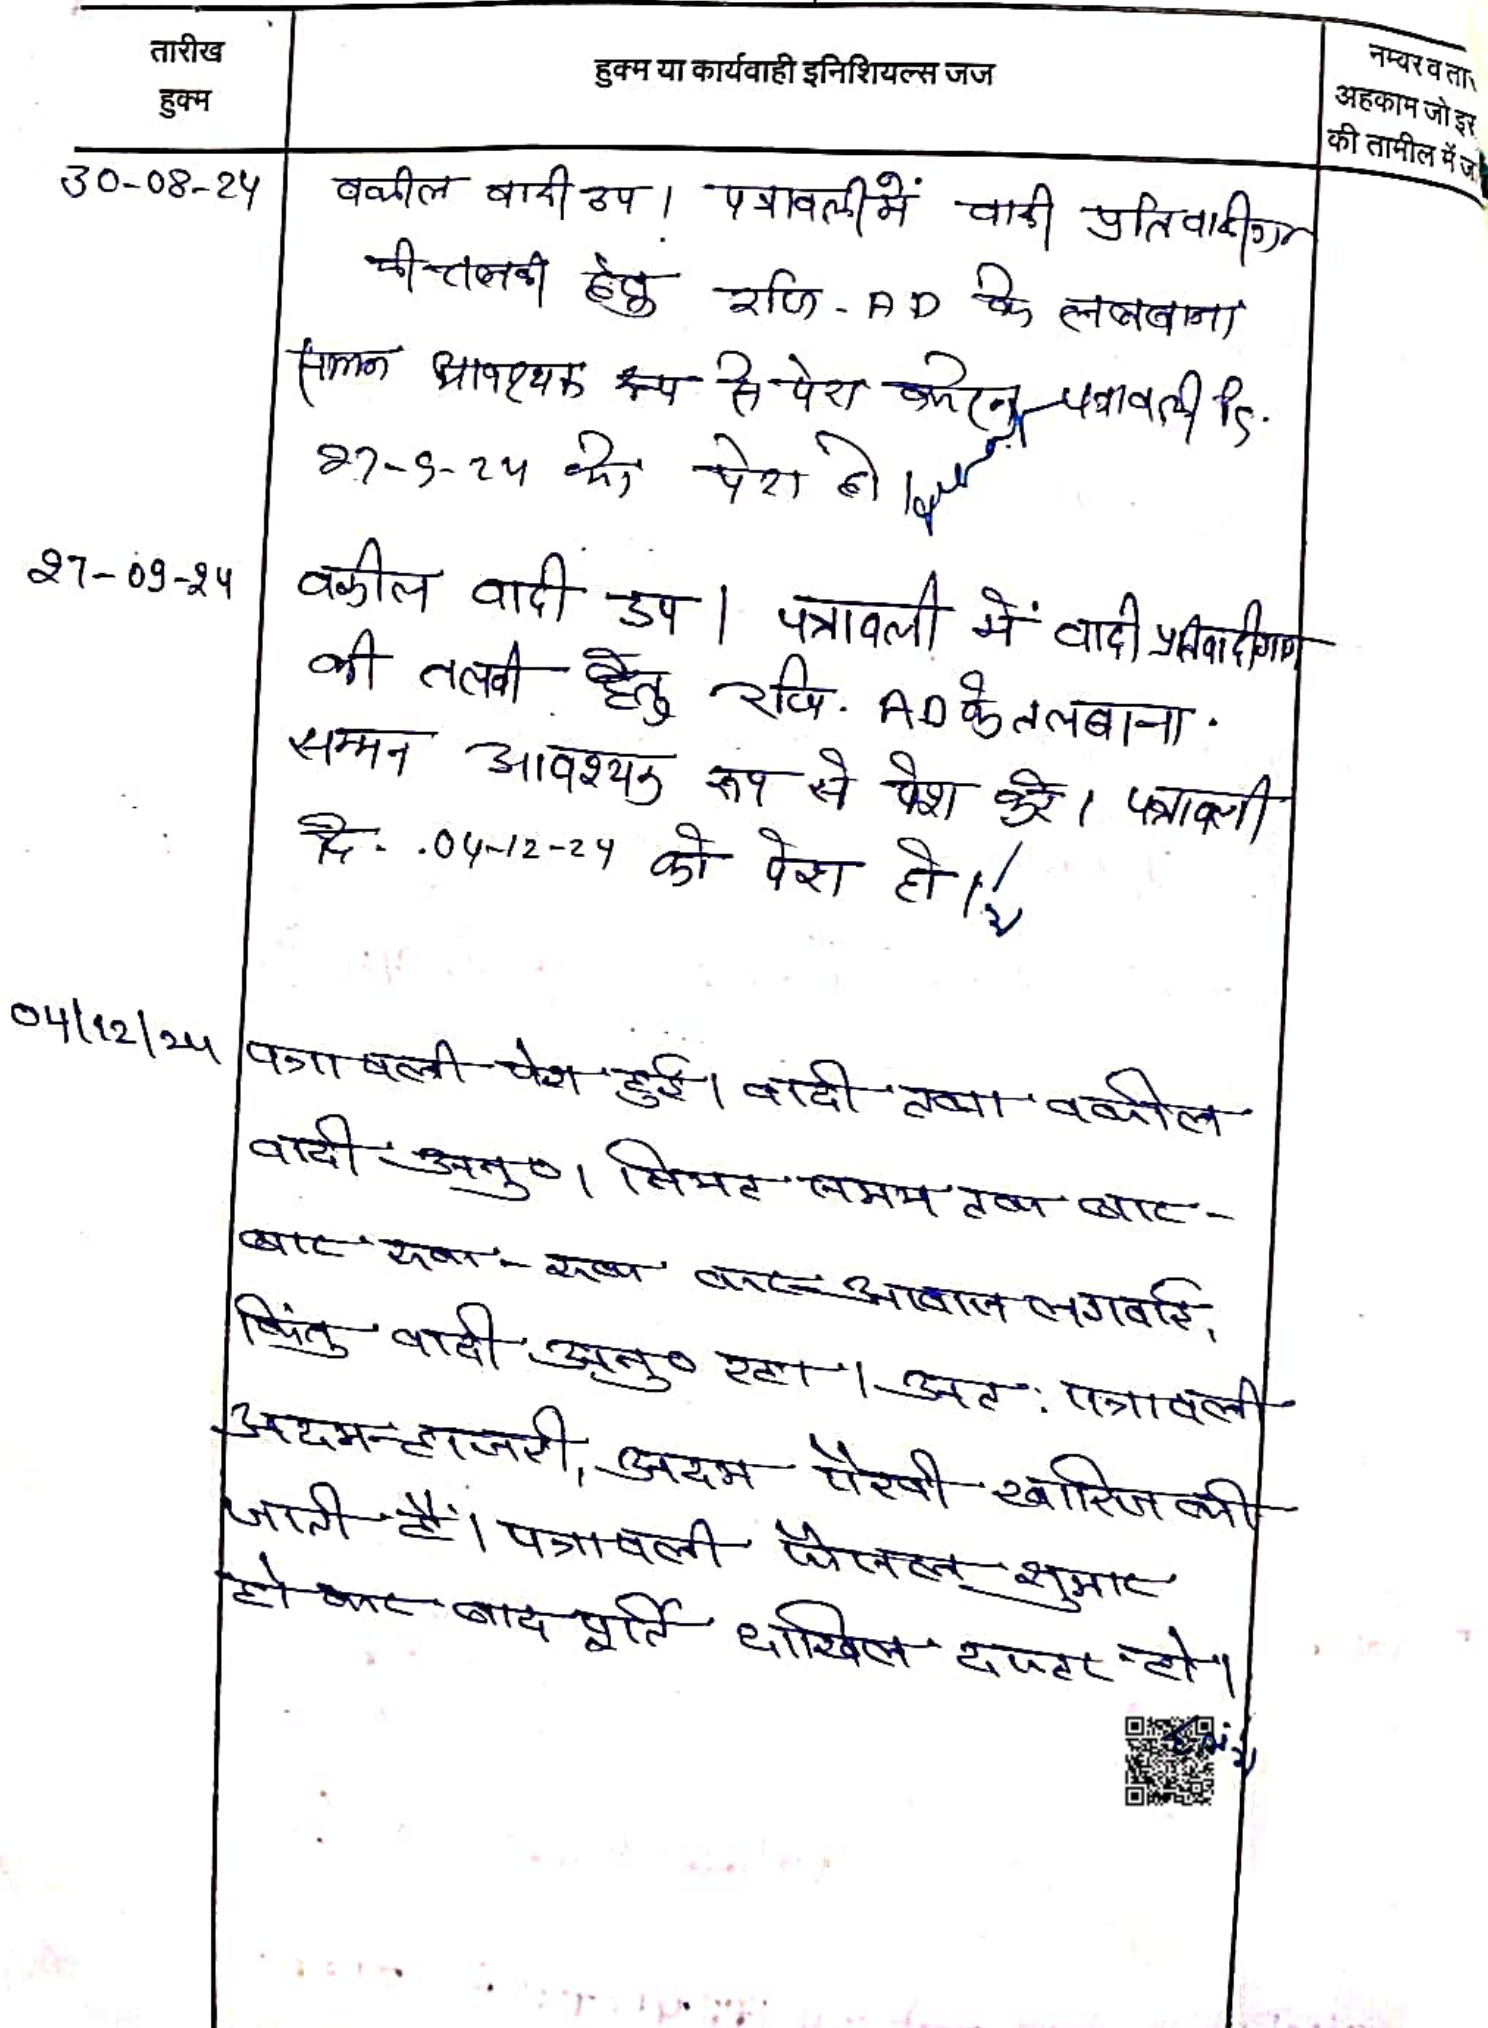 तारीख
हुक्म
हुक्म या कार्यवाही इनिशियल्स जज
नम्बर व तार
अहकाम जो इर
की तामील में ज
30-08-24
वकील वादी उप। पत्रावली में वादी प्रतिवादीगण
की तलबी हेतु रजि. AD के तलबाना
सम्मन आवश्यक रूप से पेश करें पत्रावली दि.
27-9-24 को पेश हो।
27-09-24
वकील वादी उप। पत्रावली में वादी प्रतिवादीगण
की तलबी हेतु रजि. AD के तलबाना.
सम्मन आवश्यक रूप से पेश करें। पत्रावली
दि. 04-12-24 को पेश हो।
04/12/24
पत्रावली पेश हुई। वादी तथा वकील
वादी अनु०। नियत समय तक बार-
बार रुक-रुक कर आवाज लगवाई,
किंतु वादी अनु० रहा। अत: पत्रावली
अदम-हाजरी, अदम पैरवी खारिज की
जाती है। पत्रावली फैसल शुमार
हो कर बाद पूर्ति दाखिल दफ्तर हो।